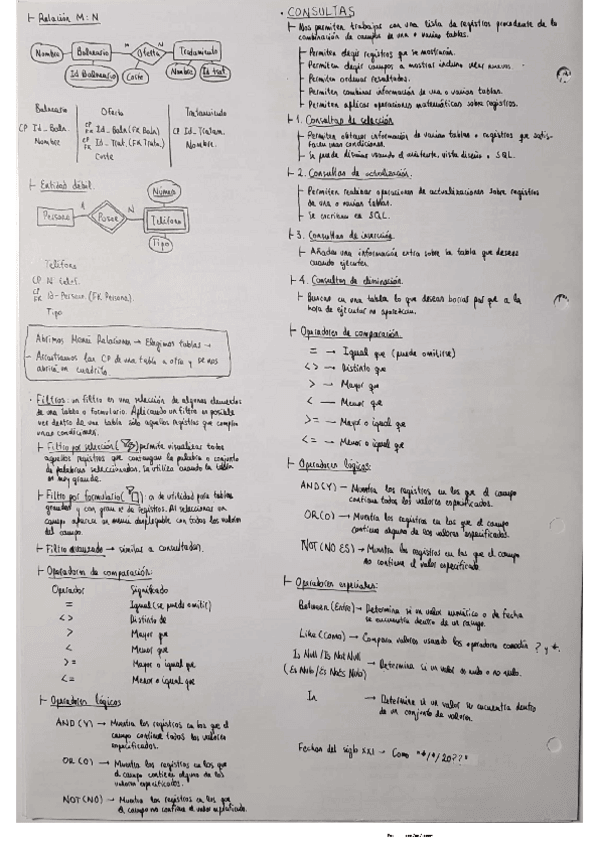 Relación M:N
Nombre Balneario M Oferta N Tratamiento
Id Balneario Coste Nombre Id trat.
Balneario Oferta Tratamiento
CP Id_Baln. CP FK Id_Baln (FK Baln) CP Id_Tratam.
Nombre CP FK Id_Trat. (FK Trata.) Nombre.
Coste
Entidad débil.
Número
Persona 1 Posee N Teléfono
Tipo
Teléfono
CP
CP FK Id-Persona. (FK Persona).
Tipo
Abrimos Menú Relaciones → Elegimos tablas →
→ Arrastramos las CP de una tabla a otra y se nos
abrirá un cuadrito.
· Filtros: un filtro es una selección de algunos elementos
de una tabla o formulario. Aplicando un filtro es posible
ver dentro de una tabla sólo aquellos registros que cumplen
unas condiciones.
Filtro por selección( ) permite visualizar todos
aquellos registros que contengan la palabra o conjunto
de palabras seleccionadas. Se utiliza cuando la tabla
es muy grande.
Filtro por formulario( ): es de utilidad para tablas
grandes y con gran nº de registros. Al seleccionar un
campo aparece un menú desplegable con todos los valores
del campo.
Filtro avanzado → similar a consultas.
Operadores de comparación:
Operador Significado
= Igual (se puede omitir)
<> Distinto de
> Mayor que
< Menor que
>= Mayor o igual que
<= Menor o igual que
Operadores lógicos
AND (Y) → Muestra los registros en los que el
campo contiene todos los valores
especificados.
OR (O) → Muestra los registros en los que
el campo contiene alguno de los
valores especificados.
NOT (NO) → Muestra los registros en los que
el campo no contiene el valor especificado.
· CONSULTAS
Nos permiten trabajar con una lista de registros procedente de la
combinación de campos de una o varias tablas.
Permiten elegir registros que se mostrarán.
Permiten elegir campos a mostrar incluso crear nuevos.
Permiten ordenar resultados.
Permiten combinar información de una o varias tablas.
Permiten aplicar operaciones matemáticas sobre registros.
1. Consultas de selección
Permiten obtener información de varias tablas o registros que satis-
facen unas condiciones.
Se puede diseñar usando el asistente, vista diseño o SQL.
2. Consultas de actualización.
Permiten realizar operaciones de actualizaciones sobre registros
de una o varias tablas.
Se escriben en SQL.
3. Consultas de inserción
Añaden una información extra sobre la tabla que desees
cuando ejecutes.
4. Consultas de eliminación.
Buscas en una tabla lo que deseas borrar para que a la
hora de ejecutar no aparezcan.
Operadores de comparación
= → Igual que (puede omitirse)
<> → Distinto que
> → Mayor que
< → Menor que
>= → Mayor o igual que
<= → Menor o igual que
Operadores lógicos:
AND (Y) → Muestra los registros en los que el campo
contiene todos los valores especificados.
OR (O) → Muestra los registros en los que el campo
contiene alguno de los valores especificados.
NOT (NO ES) → Muestra los registros en los que el campo
no contiene el valor especificado
Operadores especiales:
Between (Entre) → Determina si un valor numérico o de fecha
se encuentra dentro de un rango.
Like (Como) → Compara valores usando los operadores comodín ? y *.
Is Null / Is Not Null
(Es Nulo / Es NoEs Nulo) → Determina si un valor es nulo o no nulo.
In → Determina si un valor se encuentra dentro
de un conjunto de valores.
Fechas del siglo XXI → Como "*/*/20??"